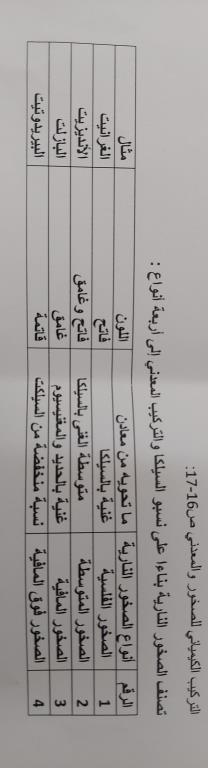 التركيب الكيميائي للصخور والمعدني ص16-17:
تصنف الصخور النارية بناءا على نسبو السيلكا والتركيب المعدني إلى أربعة أنواع :
الرقم أنواع الصخور النارية ما تحويه من معادن اللون مثال
1 الصخور الفلسية غنية بالسيلكا فاتح الغرانيت
2 الصخور المتوسطة متوسطة الغنى بالسيلكا فاتح وغامق الأنديزيت
3 الصخور المافية غنية بالحديد والمغنيسيوم غامق البازلت
4 الصخور فوق المافية نسبة منخفضة من السيلكت قاتمة البيريدوتيت